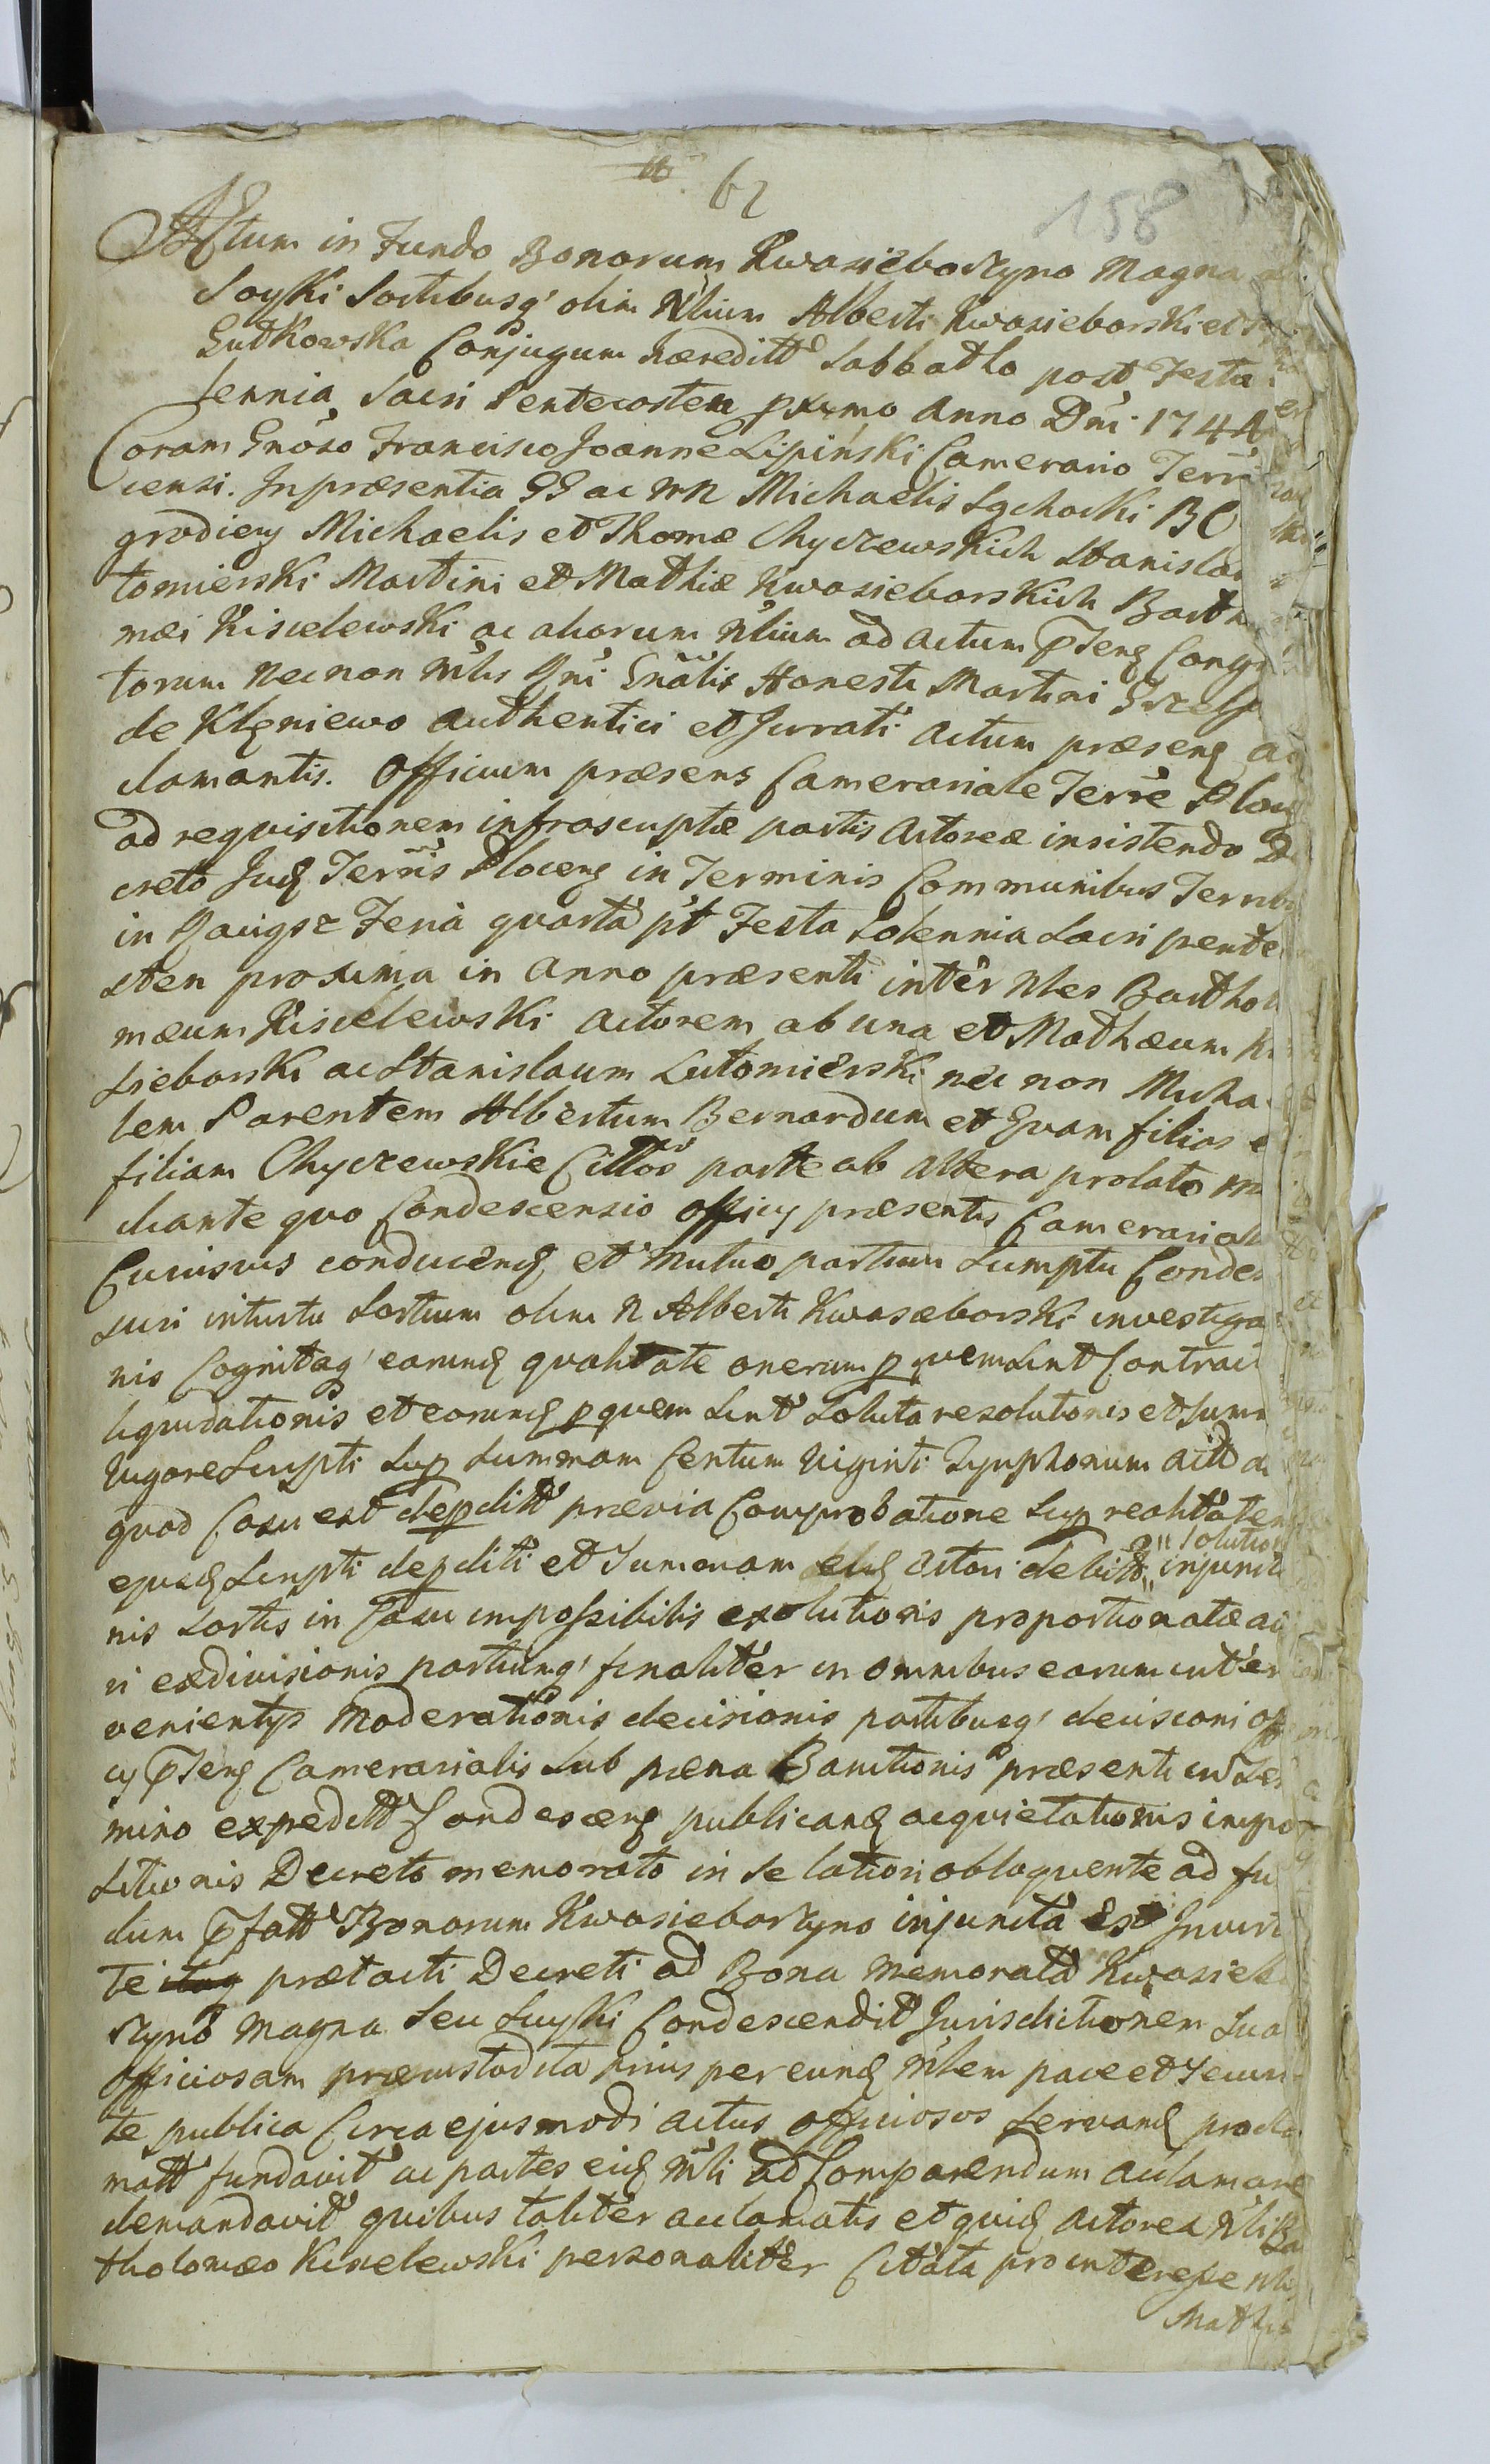 62
158
Actum in Fundo Bonorum Kwasieborzyno Magna
Soyki Sortibusq' olim Nlium Alberti Kwasieborski et
Gutkowska Conjugum hæreditt Sabbatho post Festa
lennia Sacri Pentecosten pxmo Anno Dni 1744
Coram Gnoso Francisco Joanne Lipinski Camerario Terr
censi. In præsentia GG ac NN Michaelis Sęchocki BC
grodieng Michaelis et Thomæ Chyczewskich Stanislai
tomierski Martini et Mathiæ Kwasieborskich Barth
mæi Kisielewski ac aliorum Nlium ad actum pseng Congr
torum Nec non Mlis Rni Gnalis Honesti Martini
de Klęniewo Authentici et Jurrati actum præseng ac
clamantis. Officium præsens Camerariale Terre Ploc
ad requisitionem infrascriptæ partis Actoreæ insistendo De
creto Judq Terris Ploceng in Terminis Communibus Terr
in Raciąsz Feria quarta pt Festa Solennia Sacri pente
sten proxima in Anno præsenti inter Nles Bartholo
mæum Kisielewski Actorem ab una et Mathæum K
sieborski ac Stanislaum Lutomierski nec non Micha
lem Parentem Albertum Bernardum et Evam filios e
filiam Chyczewskie Cittos parte ab altera prolato m
diante quo Condescensio officy præsentis Camerarial
Cuiusvis conducenq et mutuo partium Sumptu Conde
suri intuitu Sortium olim N Alberti Kwasieborski investiga
nis Cognitaq' earunq qualitate onerum p quem sint Contract
liquidationis et eorunq p quem sint Soluta resolutionis et Sum
Vigore Scripti Sup Summam Centum Viginti Tynphonum actt a
quod Casu est depditt prævia Comprobatione Sup realitatem
ejusq Scripti depditi et Summam Actori debitt injuncti
solution
nis Sortis in Casu impossibilis exolutionis proportionatæ ac
ri exdivisionis partiumq' finaliter in omnibus earum inter
venientys Moderationis decisionis partibusq' decisioni of
cy pseng Camerarialis Sub pæna Banitionis præsenti in Ter
mino expeditt Condesceng publicanq acquietationis impo
sitionis Decreto memorato in se latiori obloquente ad fu
dum pfatt Bonorum Kwasieborzyno injuncta est In virt
te prætacti Decreti ad Bona memorata Kwasiebo
rzyno Magna Seu Suyki Condescendit Jurisdictionem Sua
officiosam præcustodita prius per eunq Mlem pace et Securi
te publica Circa ejusmodi actus officiosos Servanq procla
matt fundavit ac partes eidq Mli ad Comparendum acclamare
demandavit quibus taliter acclamatis et quidq actorea Nli Ba
tholomæo Kisielewski personaliter Citata pro
Mathia